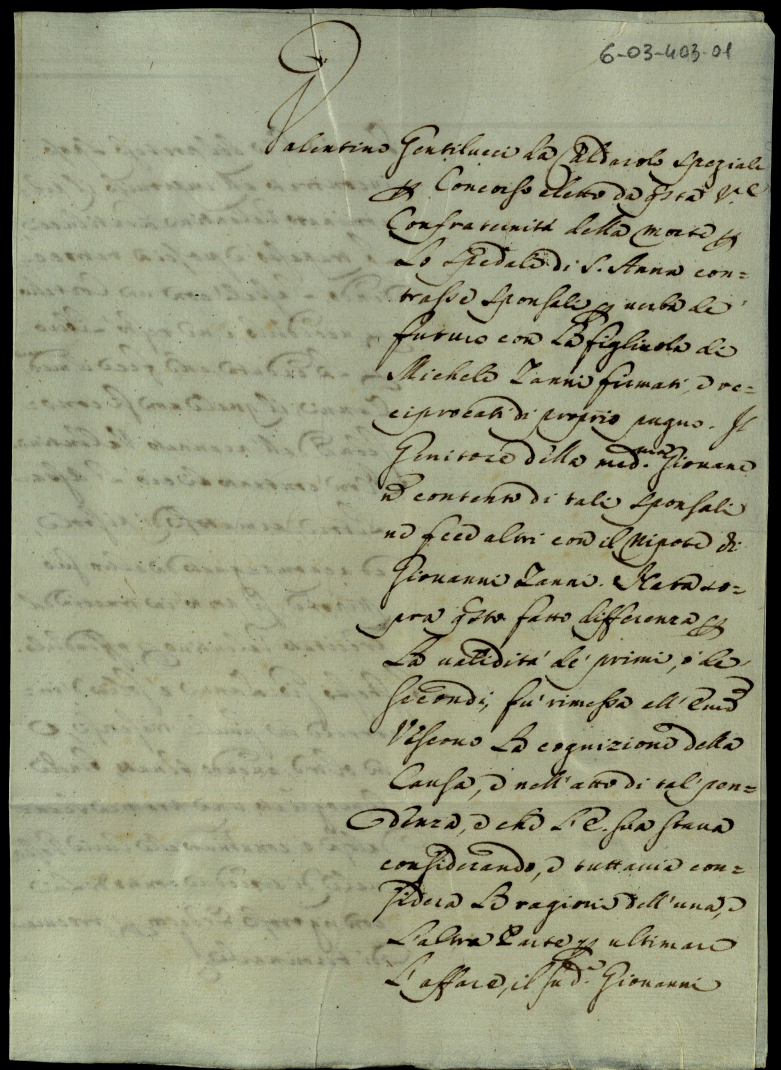 6-03-403-01
Valentino Gentilucci da Caldarola Speziale
Concorso eletto da qsta V.e
Confraternità della Morte
Lo Spedale di S. Anna con=
trasse Sponsali verba de
futuro con La figliuola di
Michele Zanni firmati, e re=
ciprocati di proprio pugno. Il
Genitore della med.ma Giovane
contento di tali Sponsali
ne fece altri con il Nipote di
Giovanni Zanni. Nata so=
pra qsto fatto differenza
La validità de' primi, o de
secondi, fu rimessa all'
Vescovo La cognizione della
Causa, e nell'atto di tal pen=
denza, e che L'E. Sua stava
considerando, e tuttavia con=
sidera Le ragioni dell'una, e
L'altra Parte ultimare
L'affare, il sud.o Giovanni